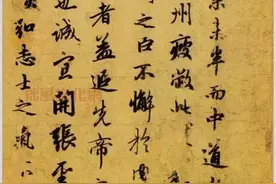 業未半而中道
州疲敝此
之臣不懈於
者蓋追先帝之
也誠宜開張聖
弘志士之氣不